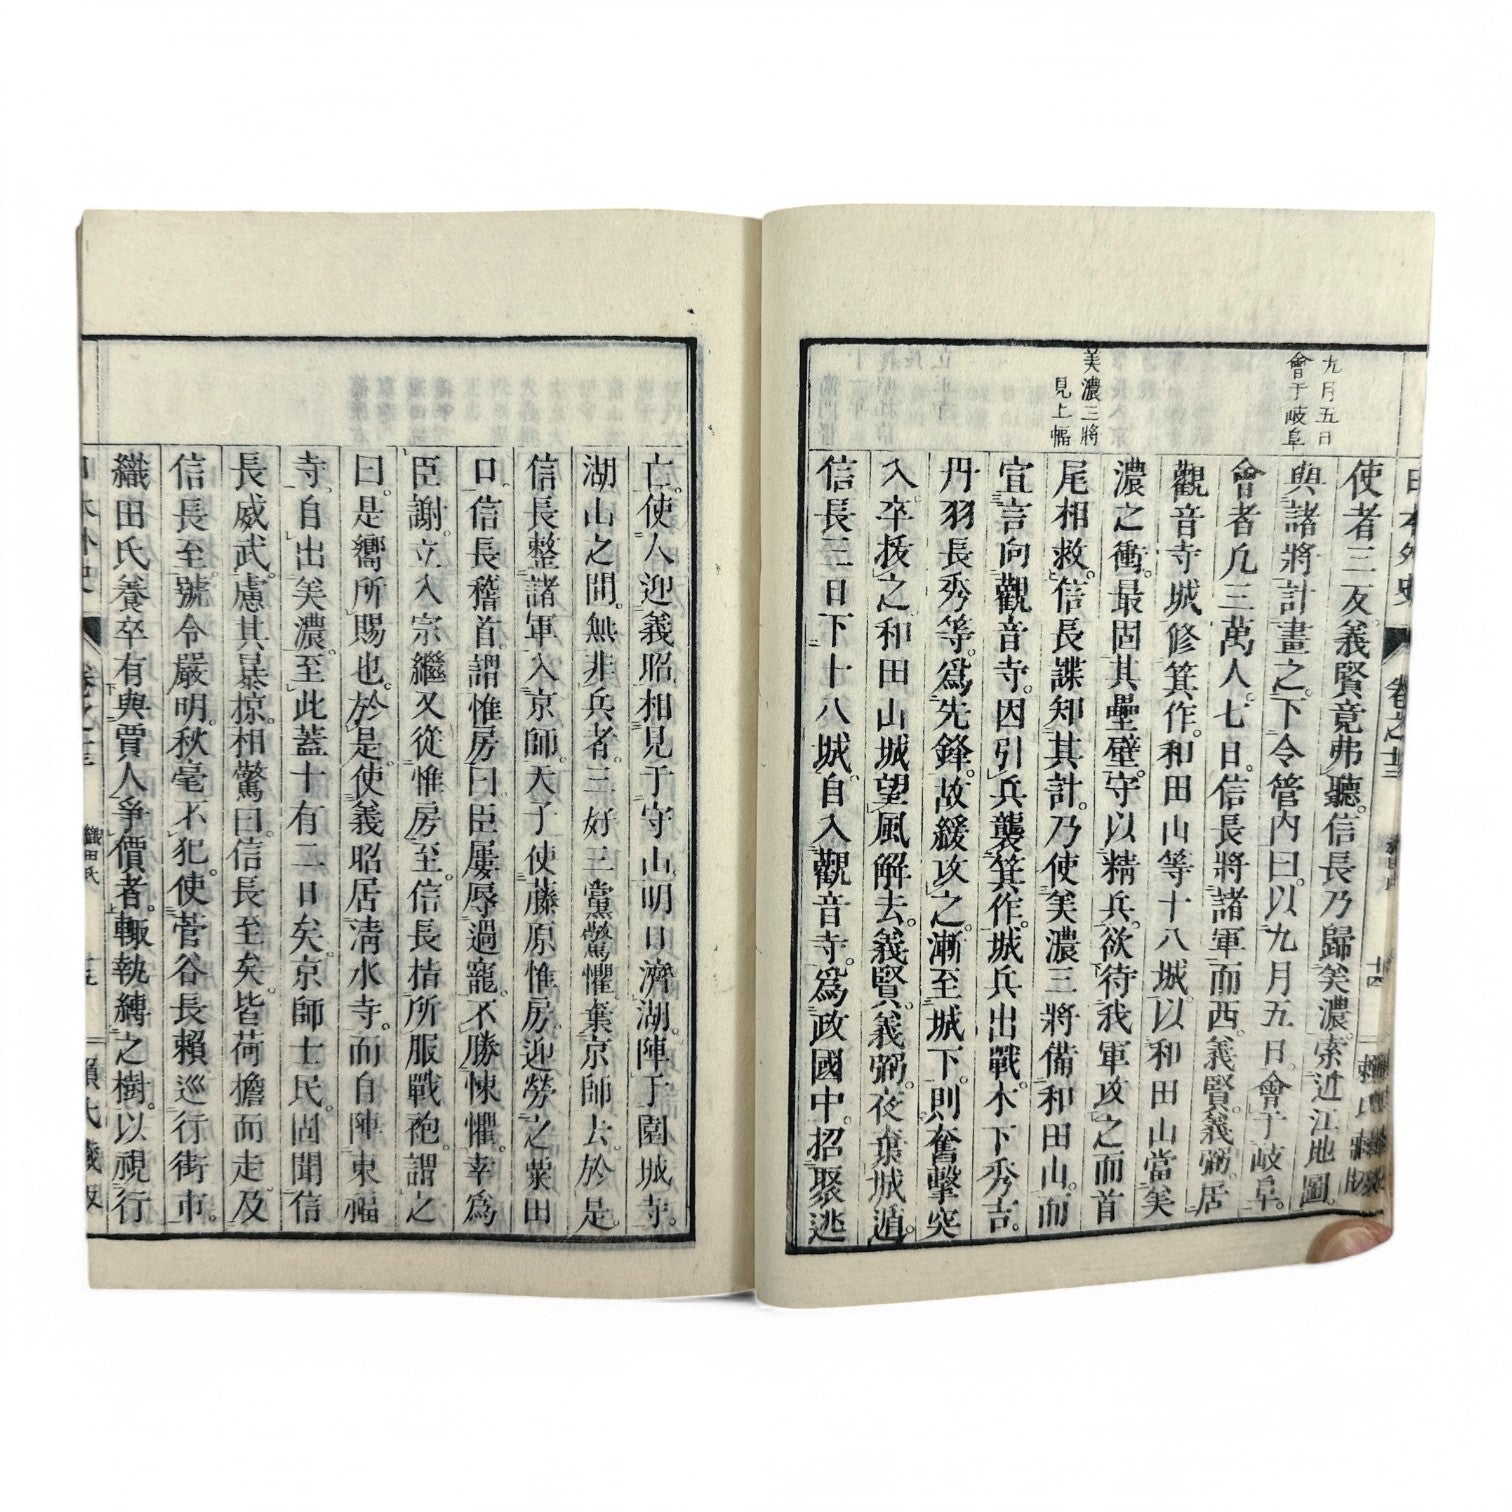 九月五日
會于岐阜
美濃三將
見上幅
日本外史
卷之十三
十四
使者三反。義賢竟弗聽。信長乃歸美濃。索近江地圖。
與諸將計畫之。下令管內曰。以九月五日。會于岐阜。
會者凡三萬人。七日。信長將諸軍而西。義賢。義弼。居
觀音寺城。修箕作。和田山等十八城。以和田山當美
濃之衝。最固其壘壁。守以精兵。欲待我軍攻之而首
尾相救。信長諜知其計。乃使美濃三將備和田山。而
宣言向觀音寺。因引兵襲箕作。城兵出戰。木下秀吉。
丹羽長秀等。爲先鋒。故緩攻之。漸至城下。則奮擊突
入。卒拔之。和田山城望風解去。義賢。義弼。夜棄城遁。
信長三日下十八城。自入觀音寺。爲政國中。招聚逃
亡。使人迎義昭相見于守山。明日濟湖。陣于園城寺。
湖山之間。無非兵者。三好三黨驚懼。棄京師去。於是。
信長整諸軍入京師。天子使藤原惟房迎勞之粟田
口。信長稽首。謂惟房曰。臣屢辱過寵。不勝悚懼。幸爲
臣謝。立入宗繼又從惟房至。信長指所服戰袍。謂之
曰。是嚮所賜也。於是。使義昭居淸水寺。而自陣東福
寺。自出美濃。至此蓋十有二日矣。京師士民。固聞信
長威武。慮其暴掠。相驚曰。信長至矣。皆荷擔而走。及
信長至。號令嚴明。秋毫不犯。使菅谷長賴巡行街市。
織田氏養卒有與賈人爭價者。輙執縛之樹。以視行
日本外史
卷之十三
織田氏
賴氏藏版